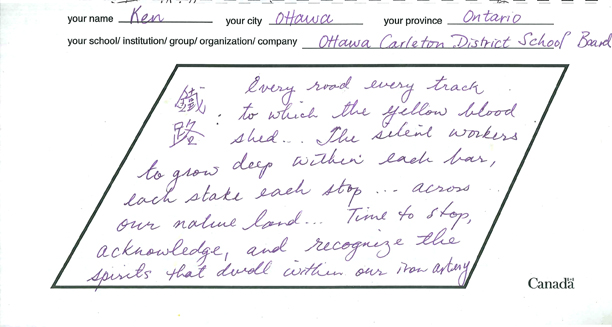 your name Ken your city Ottawa your province Ontario
your school/ institution/ group/ organization/ company Ottawa Carleton District School Board
鐵路: Every road every track
to which the yellow blood
shed... The silent workers
to grow deep within each bar,
each stake each stop... across
our native land... Time to stop,
acknowledge, and recognize the
spirits that dwell within our iron artery
Canada